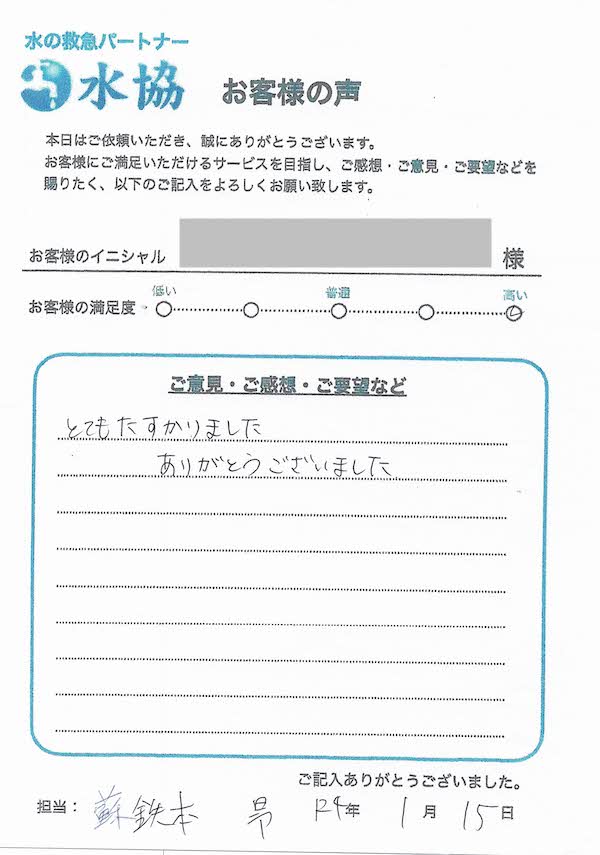 水の救急パートナー
水協 お客様の声
本日はご依頼いただき、誠にありがとうございます。
お客様にご満足いただけるサービスを目指し、ご感想・ご意見・ご要望などを
賜りたく、以下のご記入をよろしくお願い致します。
お客様のイニシャル 様
低い 普通 高い
お客様の満足度
ご意見・ご感想・ご要望など
とてもたすかりました
ありがとうございました
ご記入ありがとうございました。
担当： 蘇鉄本 年 1月 15日